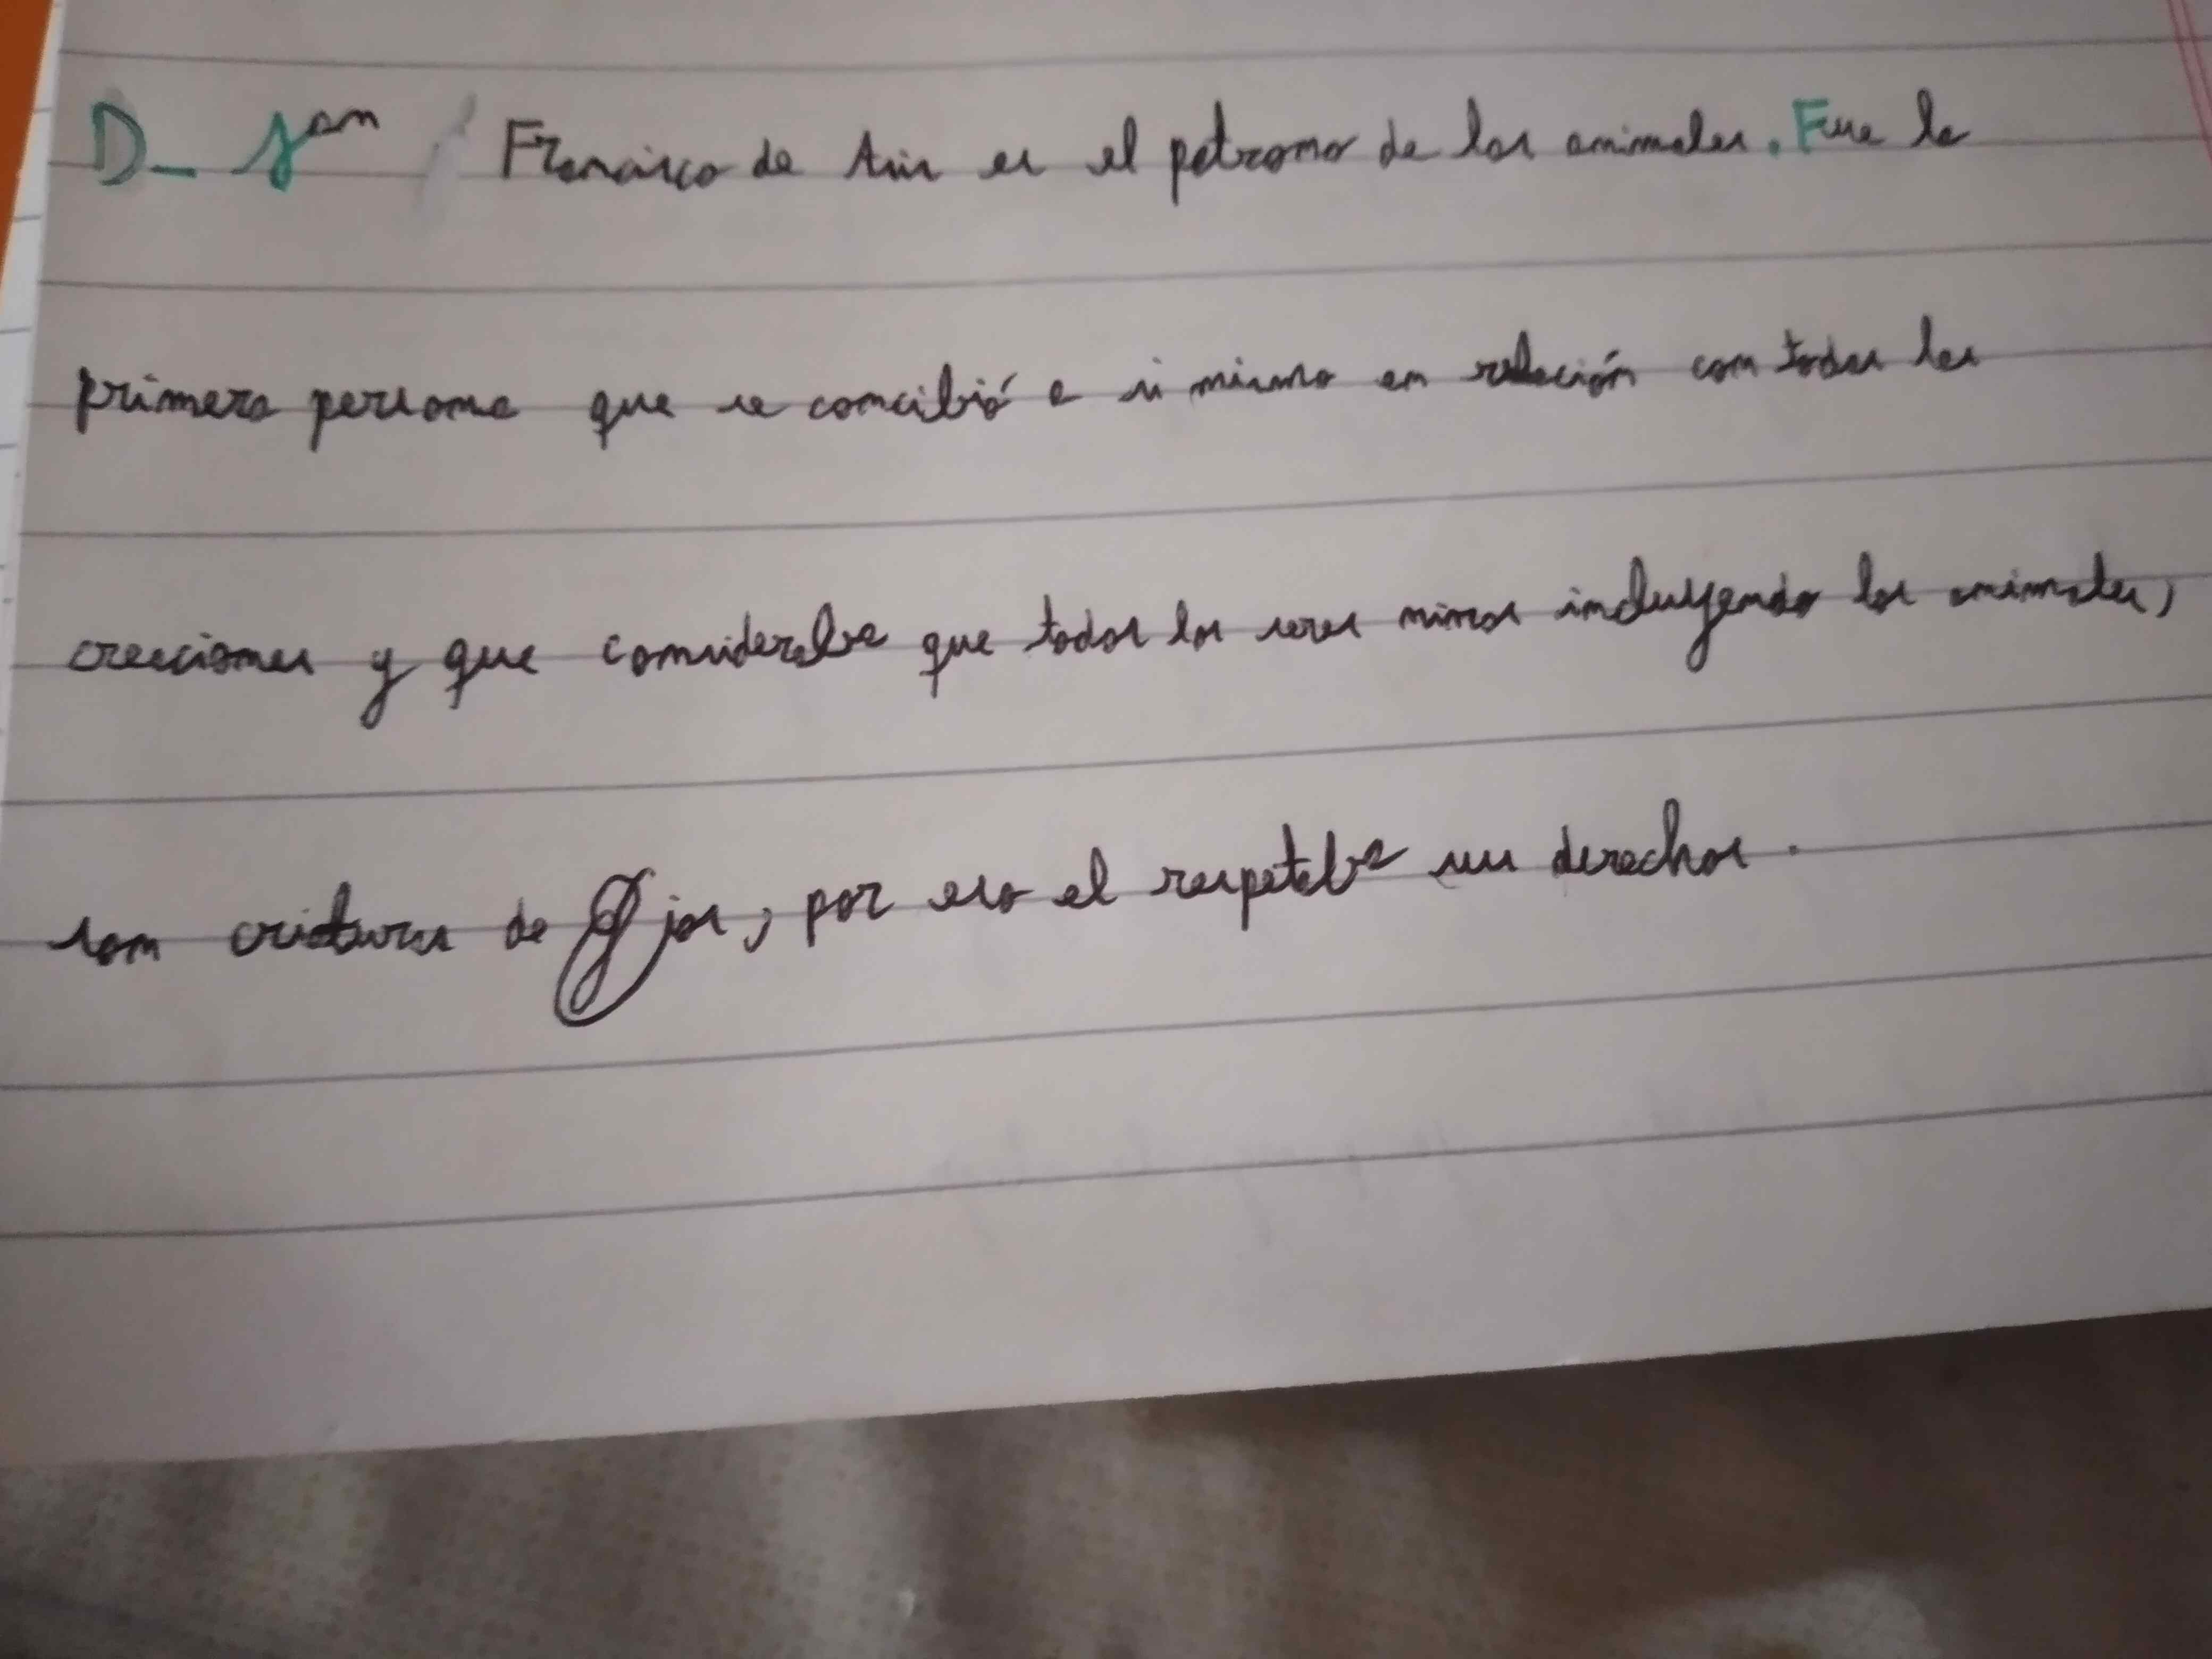 D_ San Francisco de Asis es el patrono de los animales. Fue la
primera persona que se concibió a si mismo en relación con todas las
creaciones y que consideraba que todos los seres vivos incluyendo los animales,
son criaturas de Dios, por eso el respetaba sus derechos.